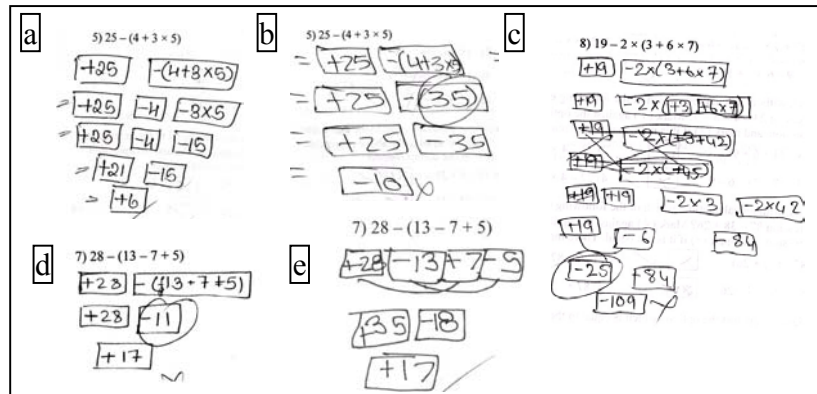 a
5) 25 – (4 + 3 × 5)
+25 -(4+3×5)
= +25 -4 -3×5
= +25 -4 -15
= +21 -15
= +6
b
5) 25 – (4 + 3 × 5)
= +25 -(4+3×5) =
= +25 -(35)
= +25 -35
= -10
c
8) 19 – 2 × (3 + 6 × 7)
+19 -2×(3+6×7)
+19 -2×(+3 +6×7)
+19 -2×(+3+42)
+19 -2×(+45)
+19 +19 -2×3 -2×42
+19 -6 -84
-25 +84
-109
d
7) 28 – (13 – 7 + 5)
+28 -(13-7+5)
+28 -11
+17
e
7) 28 – (13 – 7 + 5)
+28 -13 +7 -5
+35 -18
+17